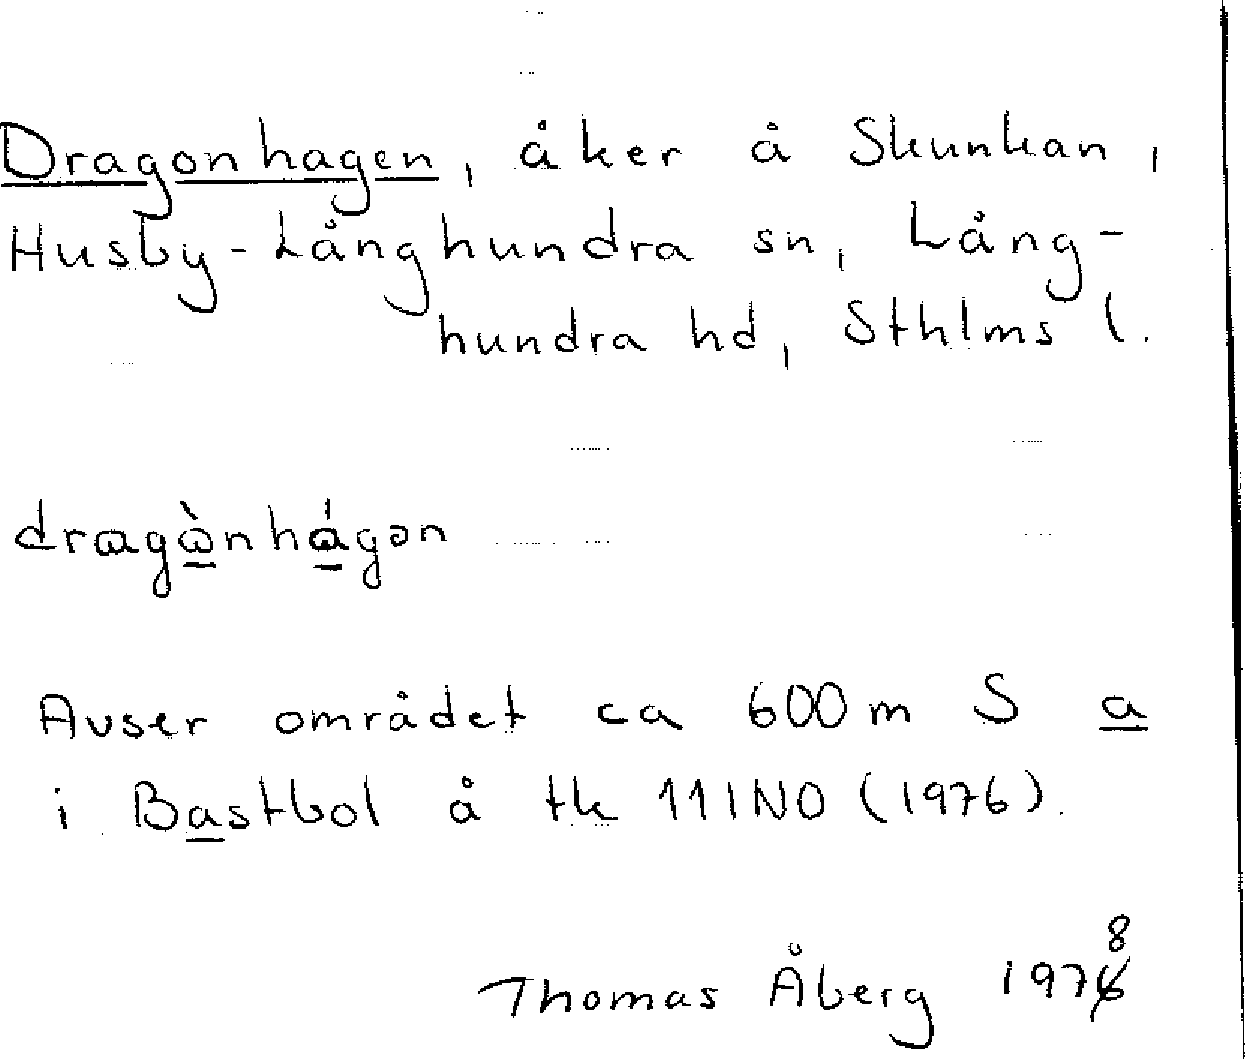 Dragonhagen, åker å Skunkan,
Husby-Långhundra sn, Lång-
hundra hd, Sthlms l.
dragὼnhágən
Avser området ca 600 m S a
i Bastbol å tk 11INO (1976).
Thomas Åberg 1978